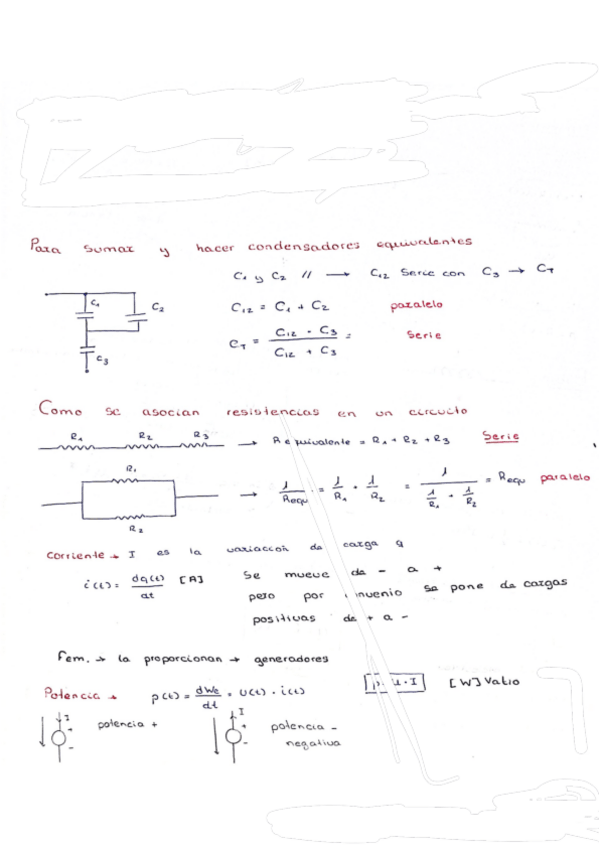 Para sumar y hacer condensadores equivalentes
C1 y C2 // → C12 serie con C3 → CT
C1
C2
C3
C12 = C1 + C2 paralelo
CT = C12 · C3 / C12 + C3 = serie
Como se asocian resistencias en un circuito
R1 R2 R3 → Requivalente = R1 + R2 + R3 Serie
R1
R2
→ 1/Requ = 1/R1 + 1/R2 = 1 / (1/R1 + 1/R2) = Requ paralelo
Corriente → I es la variaccion de carga q
i(t) = dq(t)/dt [A] Se mueve de - a +
pero por se pone de cargas
positivas de + a -
Fem. → la proporcionan → generadores
Potencia → p(t) = dWe/dt = U(t) · i(t) [W] Vatio
I + - potencia +
I + - potencia -
negativa